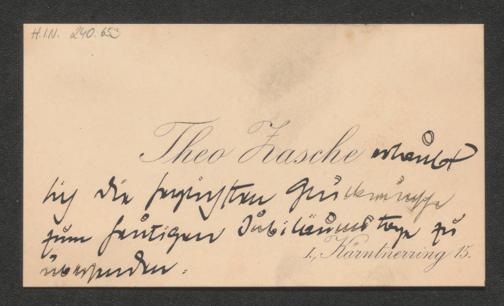 H.I.N. 240.653
Theo Zasche erlaubt
sich die herzlichsten Glückwünsche
zum heutigen Jubiläumstage zu
I., Kärntnerring 15.
übersenden.